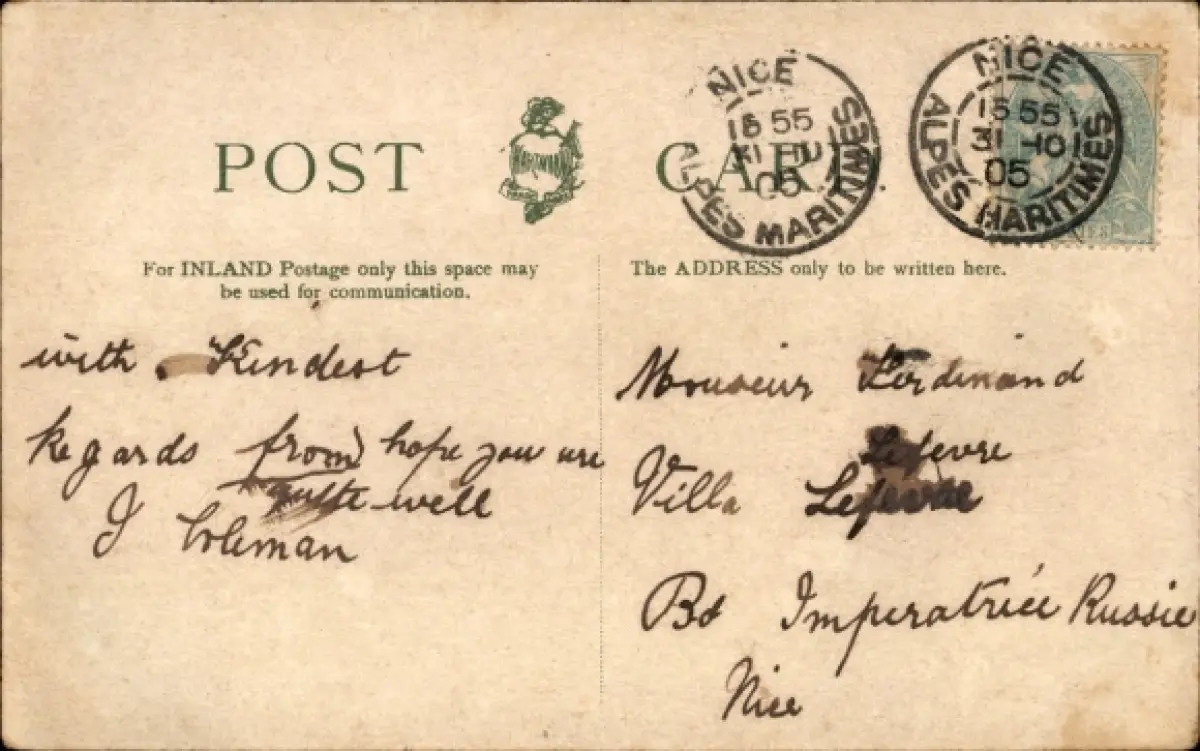 POST CARD
HARTMANN
NICE
15 55
31 10
05
ALPES MARITIMES
NICE
15 55
31 -10
05
ALPES MARITIMES
For INLAND Postage only this space may
be used for communication.
The ADDRESS only to be written here.
with Kindest
Regards from hope you are
quite well
J Coleman
Monsieur Ferdinand
Lefevre
Villa Lefevre
Bd Imperatrice Russie
Nice